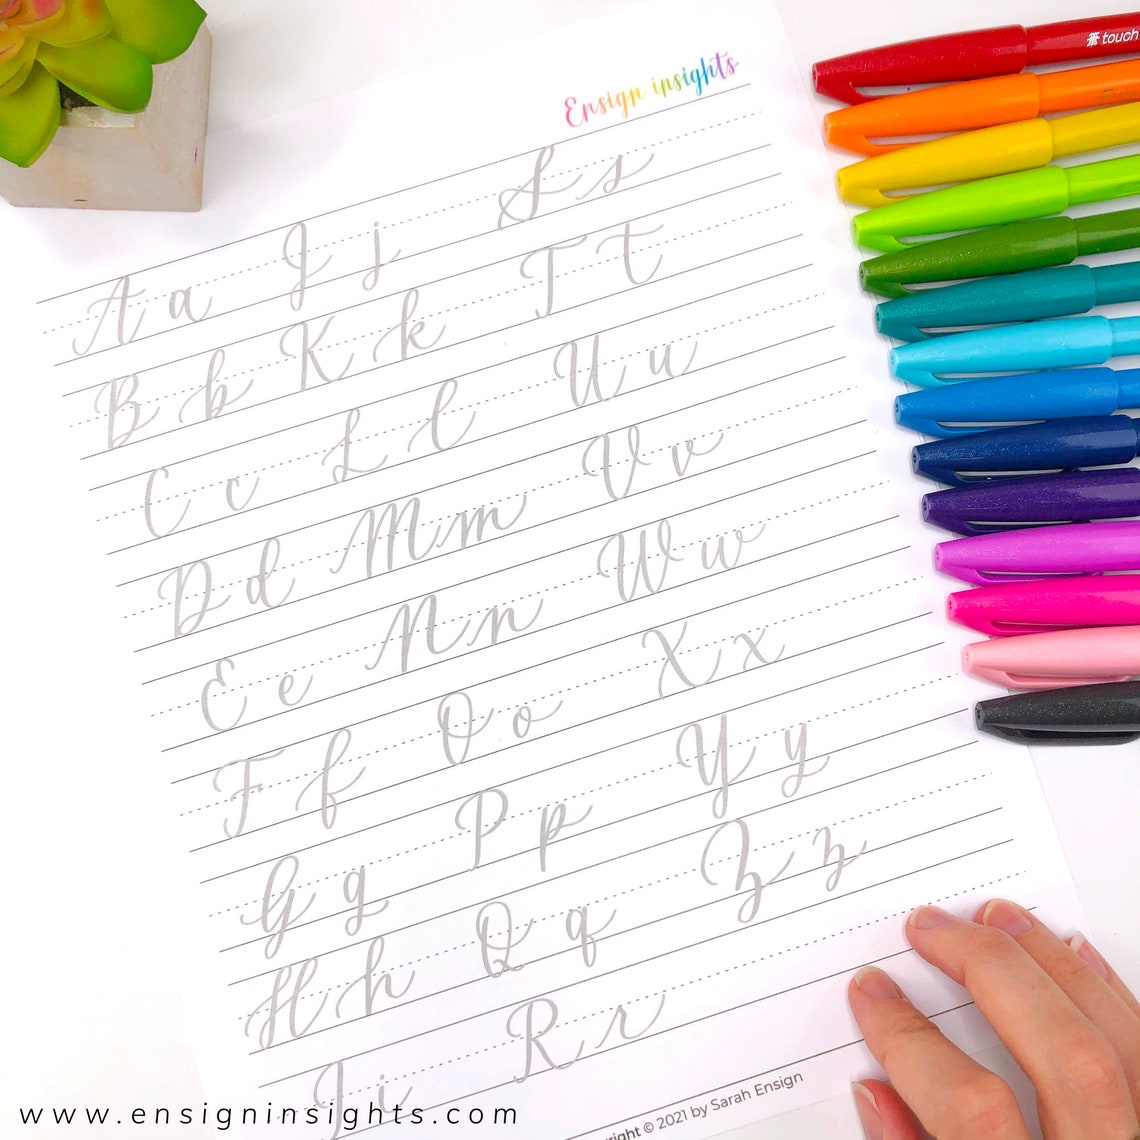 Ensign insights
A a J j S s
B b K k T t
C c L l U u
D d M m V v
E e N n W w
F f O o X x
G g P p Y y
H h Q q Z z
I i R r
© 2021 by Sarah Ensign
筆touch
www.ensigninsights.com